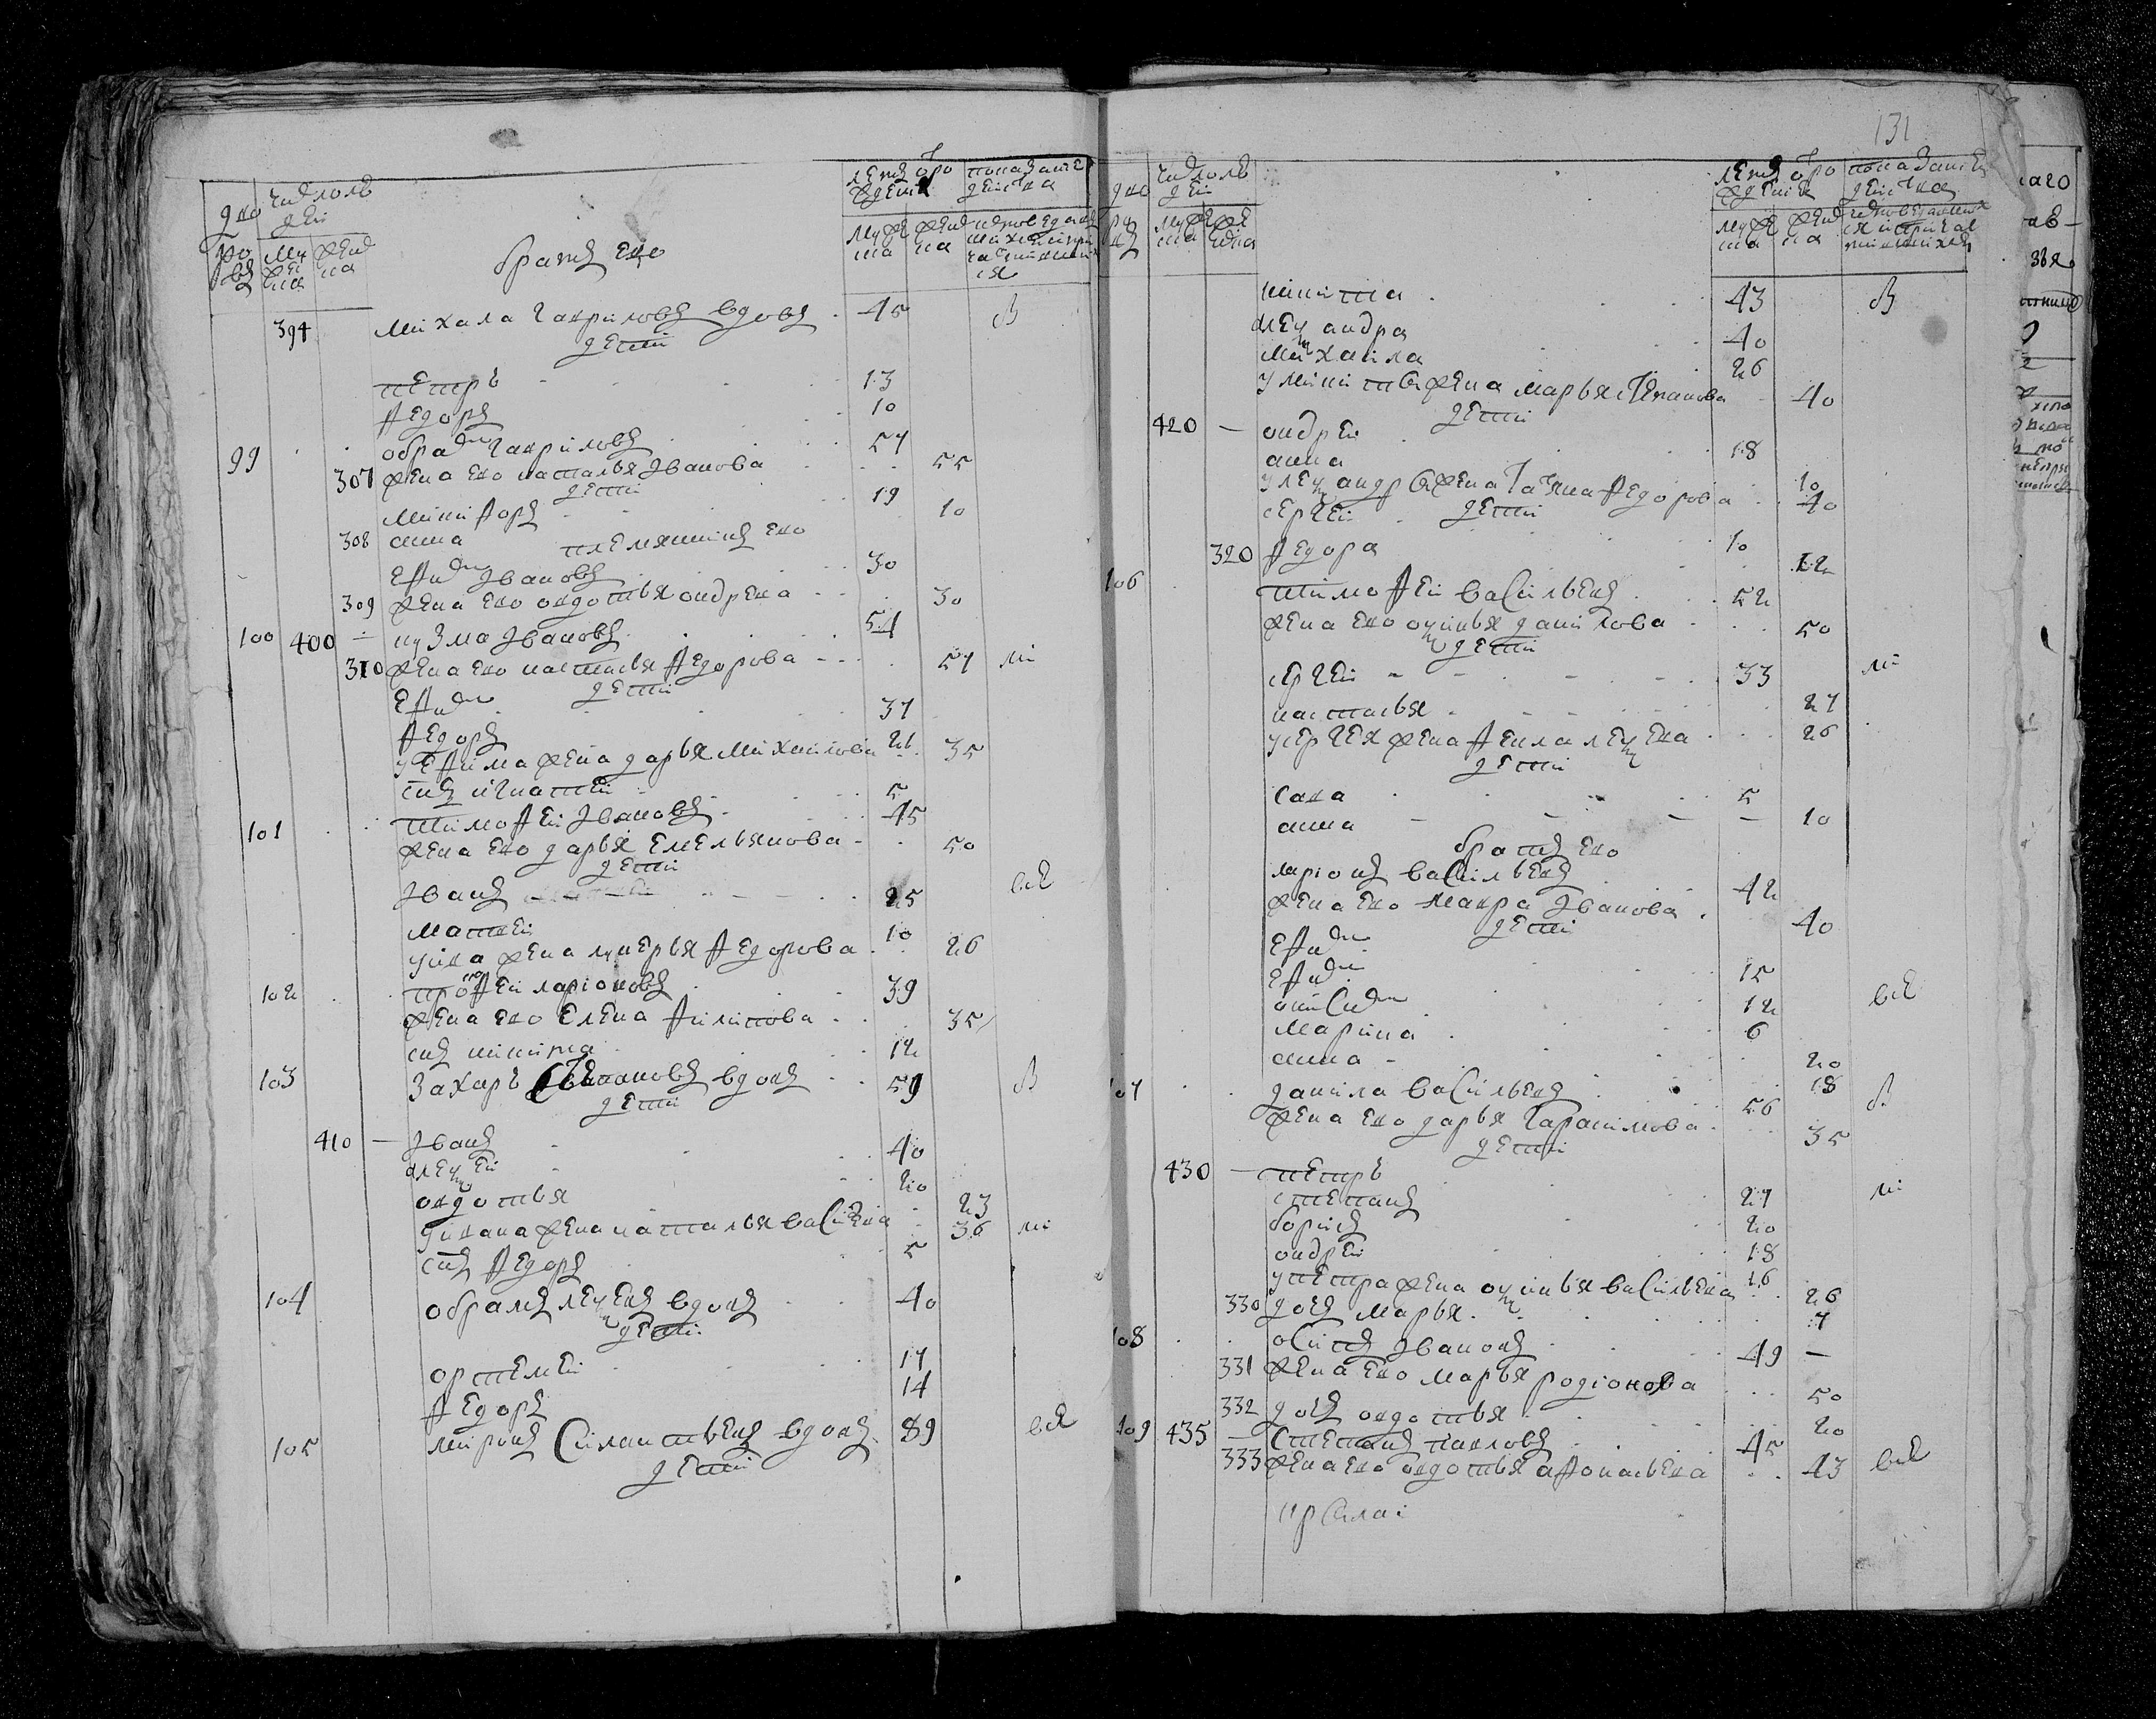 131
дво ров
число люд ей
му жес ка
жен ска
братъ ево
летъ от ро ждения
му же ска
жен ска
показание действа
394 михаила гавриловъ вдовъ 45 в
дети
петръ 13
федоръ 10
99 обрам гавриловъ 57
307 жена ево наталья иванова 55
дети
никифоръ 19
308 анна 10
племянникъ ево
ефим ивановъ 30
309 жена ево авдотья ондреева 30
100 400 кузма ивановъ 54
310 жена ево настасья федорова 57 ми
дети
ефим 37
федоръ 26
у ефима жена дарья михаилова 35
снъ игнатей 5
101 тимофей ивановъ 45
жена ево дарья емельянова 50
дети
иванъ 25 все
матвей 10
у ива жена лукерья федорова 26
102 прокофей ларионовъ 39
жена ево елена филипова 35
снъ никита 12
103 захаръ степановъ вдовъ 59 в
дети
410 иванъ 40
алексей 20
овдотья 23
у ивана жена наталья васильева 36 ми
снъ федоръ 5
104 обрамъ алексеевъ вдовъ 40
дети
ортемей 17
федоръ 14
105 миронъ силантьевъ вдовъ 89 все
дети
дво ровъ
число люд ей
му жес ка
жен ска
летъ от ро ждения
му же ска
жен ска
показание действа
никита 43 в
александра 40
михаила 26
у никиты жена марья степанова 40
дети
420 ондрей 18
анна 10
у александра жена татьяна федорова 40
сергей дети 10
320 федора 12
106 тимофей васильевъ 52
жена ево оксинья данилова 50
дети
сергей 33 ми
настасья 27
у сергея жена фекла алексеева 26
дети
сава 5
анна 10
братъ ево
ларионъ васильевъ 42
жена ево мавра иванова 40
дети
ефим 15
ефим 12 все
онисим 6
марина 20
анна 18
107 данила васильевъ 56 в
жена ево дарья гарасимова 35
дети
430 петръ 27 ми
степанъ 20
борисъ 18
ондрей 16
у петра жена оксинья васильева 26
330 дочь марья 7
108 осипъ ивановъ 49
331 жена ево марья родионова 50
332 дочь овдотья 20
109 435 степанъ павловъ 45
333 жена ево овдотья афонасьева 43 все